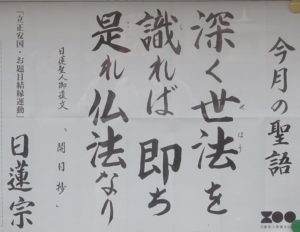 今月の聖語
深く世法を
せ ほう
識れば即ち
是れ仏法なり
日蓮聖人御遺文
、開目抄、
「立正安国・お題目結縁運動」
日蓮宗